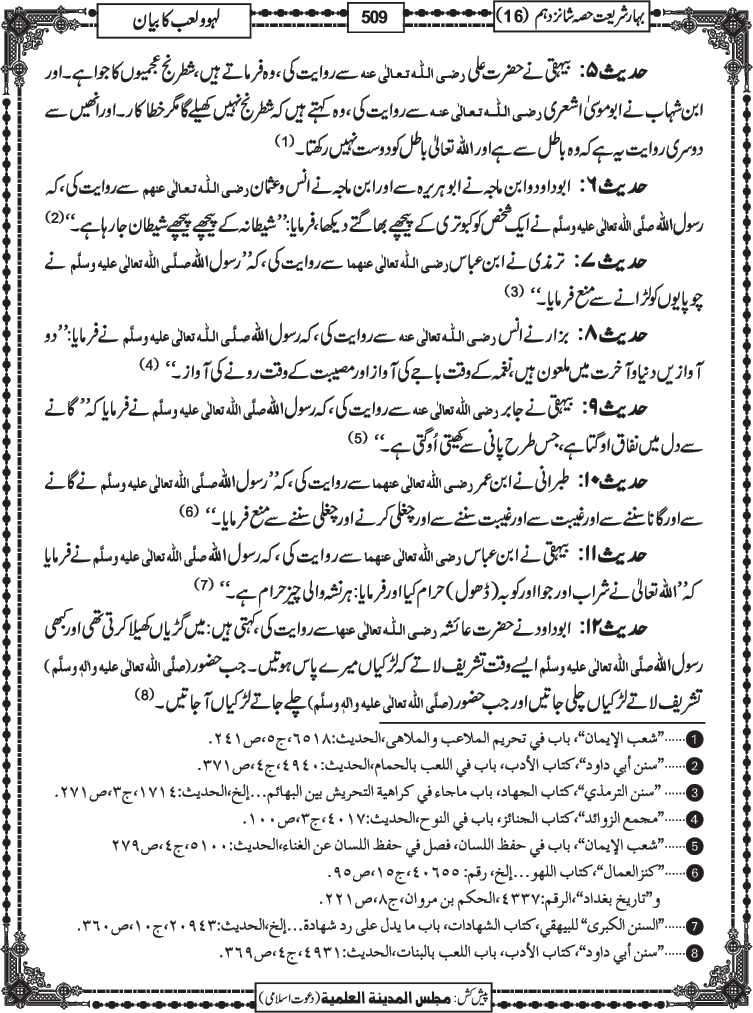 بہارِ شریعت حصہ شانزدہم (16)
509
لہو و لعب کا بیان
حدیث ۵: بیہقی نے حضرت علی رضی اللہ تعالٰی عنہ سے روایت کی، وہ فرماتے ہیں، شطرنج عجمیوں کا جوا ہے۔ اور
ابن شہاب نے ابو موسیٰ اشعری رضی اللہ تعالٰی عنہ سے روایت کی، وہ کہتے ہیں کہ شطرنج نہیں کھیلے گا مگر خطا کار۔ اور انھیں سے
دوسری روایت یہ ہے کہ وہ باطل سے ہے اور اللہ تعالیٰ باطل کو دوست نہیں رکھتا۔ (1)
حدیث ۶: ابوداود و ابن ماجہ نے ابوہریرہ سے اور ابن ماجہ نے انس و عثمان رضی اللہ تعالٰی عنہم سے روایت کی، کہ
رسول اللہ صلَّی اللہ تعالٰی علیہ وسلَّم نے ایک شخص کو کبوتری کے پیچھے بھاگتے دیکھا، فرمایا: ’’شیطانہ کے پیچھے پیچھے شیطان جا رہا ہے۔‘‘ (2)
حدیث ۷: ترمذی نے ابن عباس رضی اللہ تعالٰی عنہما سے روایت کی، کہ ’’رسول اللہ صلَّی اللہ تعالٰی علیہ وسلَّم نے
چوپایوں کو لڑانے سے منع فرمایا۔‘‘ (3)
حدیث ۸: بزار نے انس رضی اللہ تعالٰی عنہ سے روایت کی، کہ رسول اللہ صلَّی اللہ تعالٰی علیہ وسلَّم نے فرمایا: ’’دو
آوازیں دنیا و آخرت میں ملعون ہیں، نغمہ کے وقت باجے کی آواز اور مصیبت کے وقت رونے کی آواز۔‘‘ (4)
حدیث ۹: بیہقی نے جابر رضی اللہ تعالٰی عنہ سے روایت کی، کہ رسول اللہ صلَّی اللہ تعالٰی علیہ وسلَّم نے فرمایا کہ ’’گانے
سے دل میں نفاق اوگتا ہے، جس طرح پانی سے کھیتی اُوگتی ہے۔‘‘ (5)
حدیث ۱۰: طبرانی نے ابن عمر رضی اللہ تعالٰی عنہما سے روایت کی، کہ ’’رسول اللہ صلَّی اللہ تعالٰی علیہ وسلَّم نے گانے
سے اور گانا سننے سے اور غیبت سے اور غیبت سننے سے اور چغلی کرنے اور چغلی سننے سے منع فرمایا۔‘‘ (6)
حدیث ۱۱: بیہقی نے ابن عباس رضی اللہ تعالٰی عنہما سے روایت کی، کہ رسول اللہ صلَّی اللہ تعالٰی علیہ وسلَّم نے فرمایا
کہ ’’اللہ تعالیٰ نے شراب اور جوا اور کوبہ (ڈھول) حرام کیا اور فرمایا: ہر نشہ والی چیز حرام ہے۔‘‘ (7)
حدیث ۱۲: ابوداود نے حضرت عائشہ رضی اللہ تعالٰی عنہا سے روایت کی، کہتی ہیں: میں گڑیاں کھیلا کرتی تھی اور کبھی
رسول اللہ صلَّی اللہ تعالٰی علیہ وسلَّم ایسے وقت تشریف لاتے کہ لڑکیاں میرے پاس ہوتیں۔ جب حضور (صلَّی اللہ تعالٰی علیہ واٰلہٖ وسلَّم)
تشریف لاتے لڑکیاں چلی جاتیں اور جب حضور (صلَّی اللہ تعالٰی علیہ واٰلہٖ وسلَّم) چلے جاتے لڑکیاں آ جاتیں۔ (8)
1 ......"شعب الإيمان"، باب في تحريم الملاعب والملاهي،الحديث:٦٥١٨،ج٥،ص٢٤١.
2 ......"سنن أبي داود"،كتاب الأدب، باب في اللعب بالحمام،الحديث:٤٩٤٠،ج٤،ص٣٧١.
3 ......"سنن الترمذي"،كتاب الجهاد، باب ماجاء في كراهية التحريش بين البهائم...إلخ،الحديث:١٧١٤،ج٣،ص٢٧١.
4 ......"مجمع الزوائد"،كتاب الجنائز، باب في النوح،الحديث:٤٠١٧،ج٣،ص١٠٠.
5 ......"شعب الإيمان"، باب في حفظ اللسان، فصل في حفظ اللسان عن الغناء،الحديث:٥١٠٠،ج٤،ص٢٧٩
6 ......"كنزالعمال"،كتاب اللهو...إلخ، رقم: ٤٠٦٥٥،ج١٥،ص٩٥.
و"تاريخ بغداد"،الرقم:٤٣٣٧،الحكم بن مروان،ج٨،ص٢٢١.
7 ......"السنن الكبرى" للبيهقي،كتاب الشهادات، باب ما يدل على رد شهادة...إلخ،الحديث:٢٠٩٤٣،ج١٠،ص٣٦٠.
8 ......"سنن أبي داود"،كتاب الأدب، باب اللعب بالبنات،الحديث:٤٩٣١،ج٤،ص٣٦٩.
پیش کش: مجلس المدینة العلمیة (دعوت اسلامی)